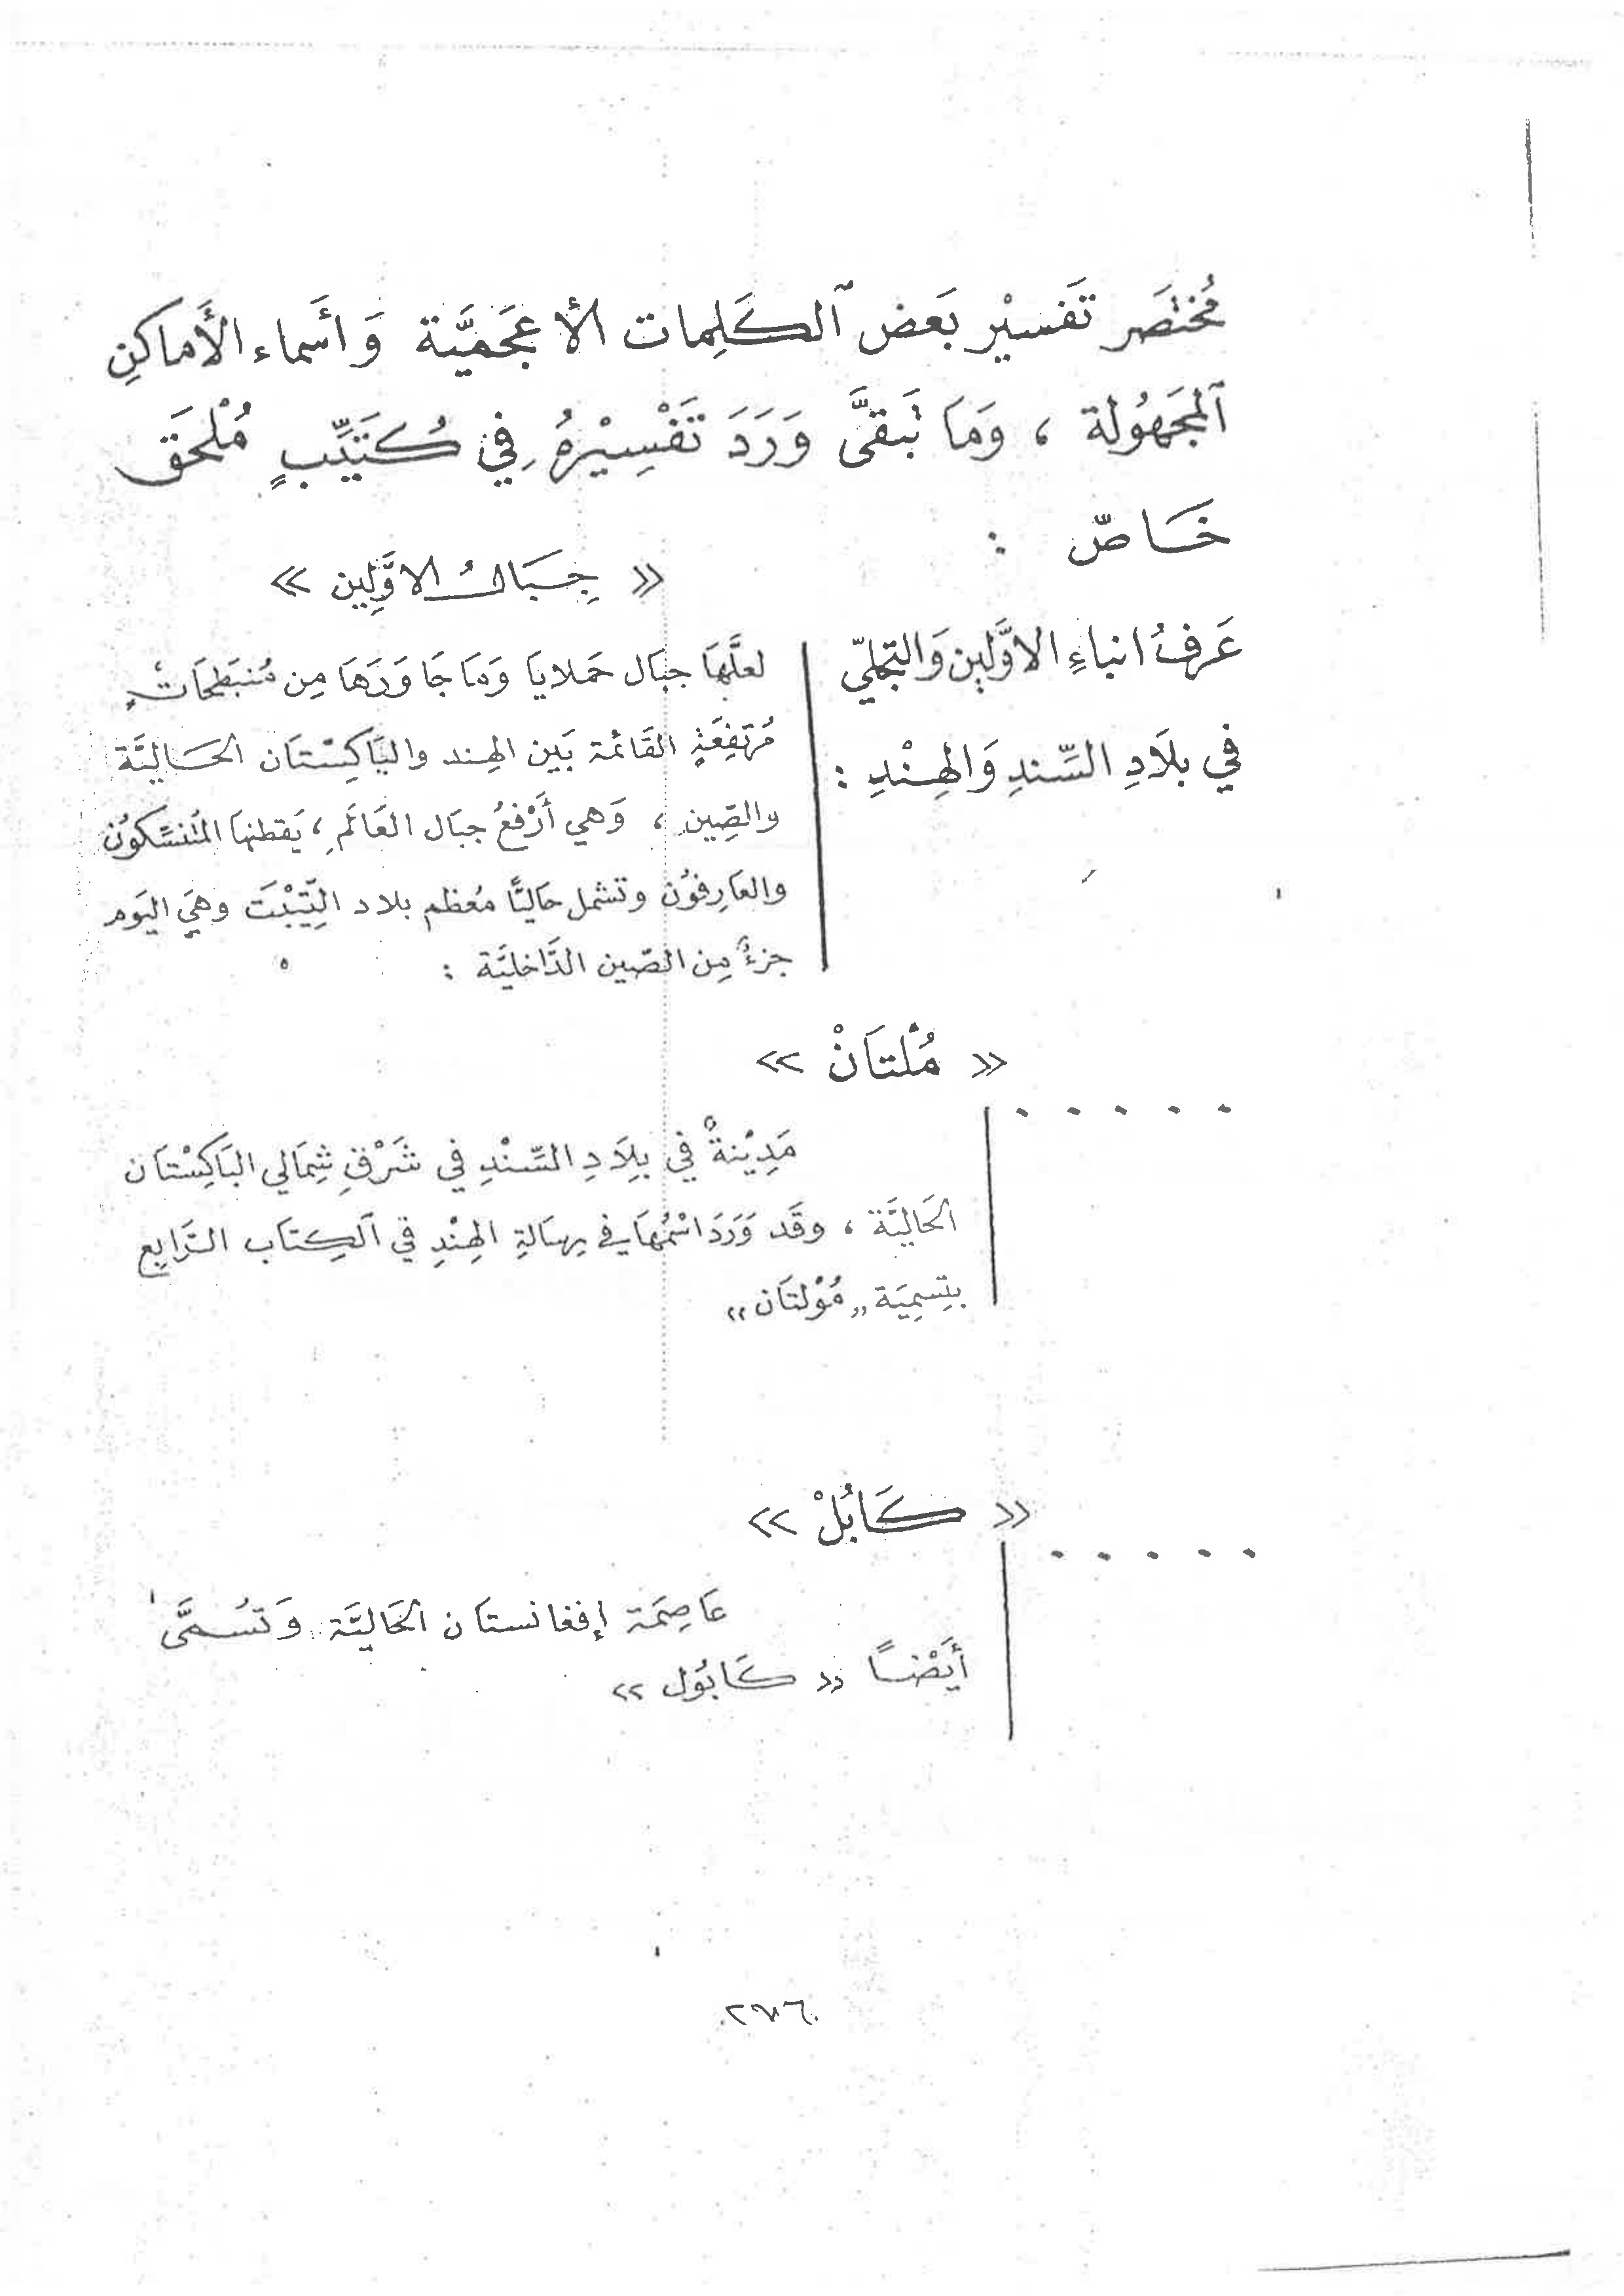 مُختصَر تَفسيْر بَعَض ٱلكَلِمات الأعجَميَّة وَأَسماء الأَماكنِ
ٱلمجَهُولة ، وَمَا تَبقىَّ وَرَدَ تَفْسِيْرهُ فِي كُتَيِّبٍ مُلْحَق
خَاصّ :
« جِبَالُ الاوَّلِين »
عَرفُ انباءِ الاوَّلين وَالتجلّي
في بلَادِ السِّندِ وَالهِنْدِ :
لعلَّهَا جبَال حَملايَا وَمَا جَاوَرَهَا مِن مُنبَطَحَاتٍ
مُرتفِعَةٍ القَائمة بَين الهِند والبَاكِسْتَان الحَاليَّة
والصِّين ، وَهي أرْفعُ جبَال العَالَم ، يَقطنهَا المُتَنسِّكوُن
والعَارِفوُن وتشمل حَاليًّا مُعظم بلاد التِّيْبْت وهيَ اليَوم
جزءٌ مِن الصّين الدَّاخليَّة :
« مُلْتَانْ »
. . . . .
مَدِيْنةٌ في بِلَادِ السِّنْدِ في شَرْقِ شِمَالي البَاكِسْتَان
الحَاليَّة ، وقَد وَرَدَ اسْمُهَا في رِسَالةِ الهِنْدِ في ٱلكِتَاب الرَّابع
بتِسميَة „ مُوْلتَان "
« كَابُلْ »
. . . . .
عَاصِمَة إفغانستَان الحَاليَّة وَتسُمَّى
أيَضْاً « كَابُول »